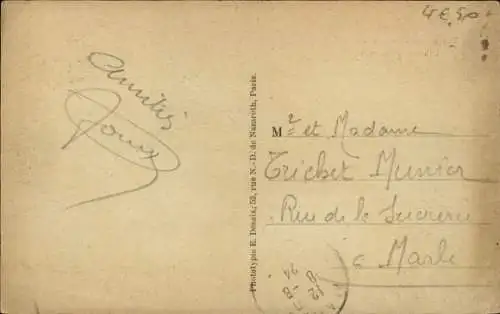 4 E. 50
Amitiés
Phototypie E. Desaix, 53, rue N.-D. de Nazareth, Paris.
Mr et Madame
Trichet Munier
Rue de la Sucrerie
à Marle
12
8-8
24